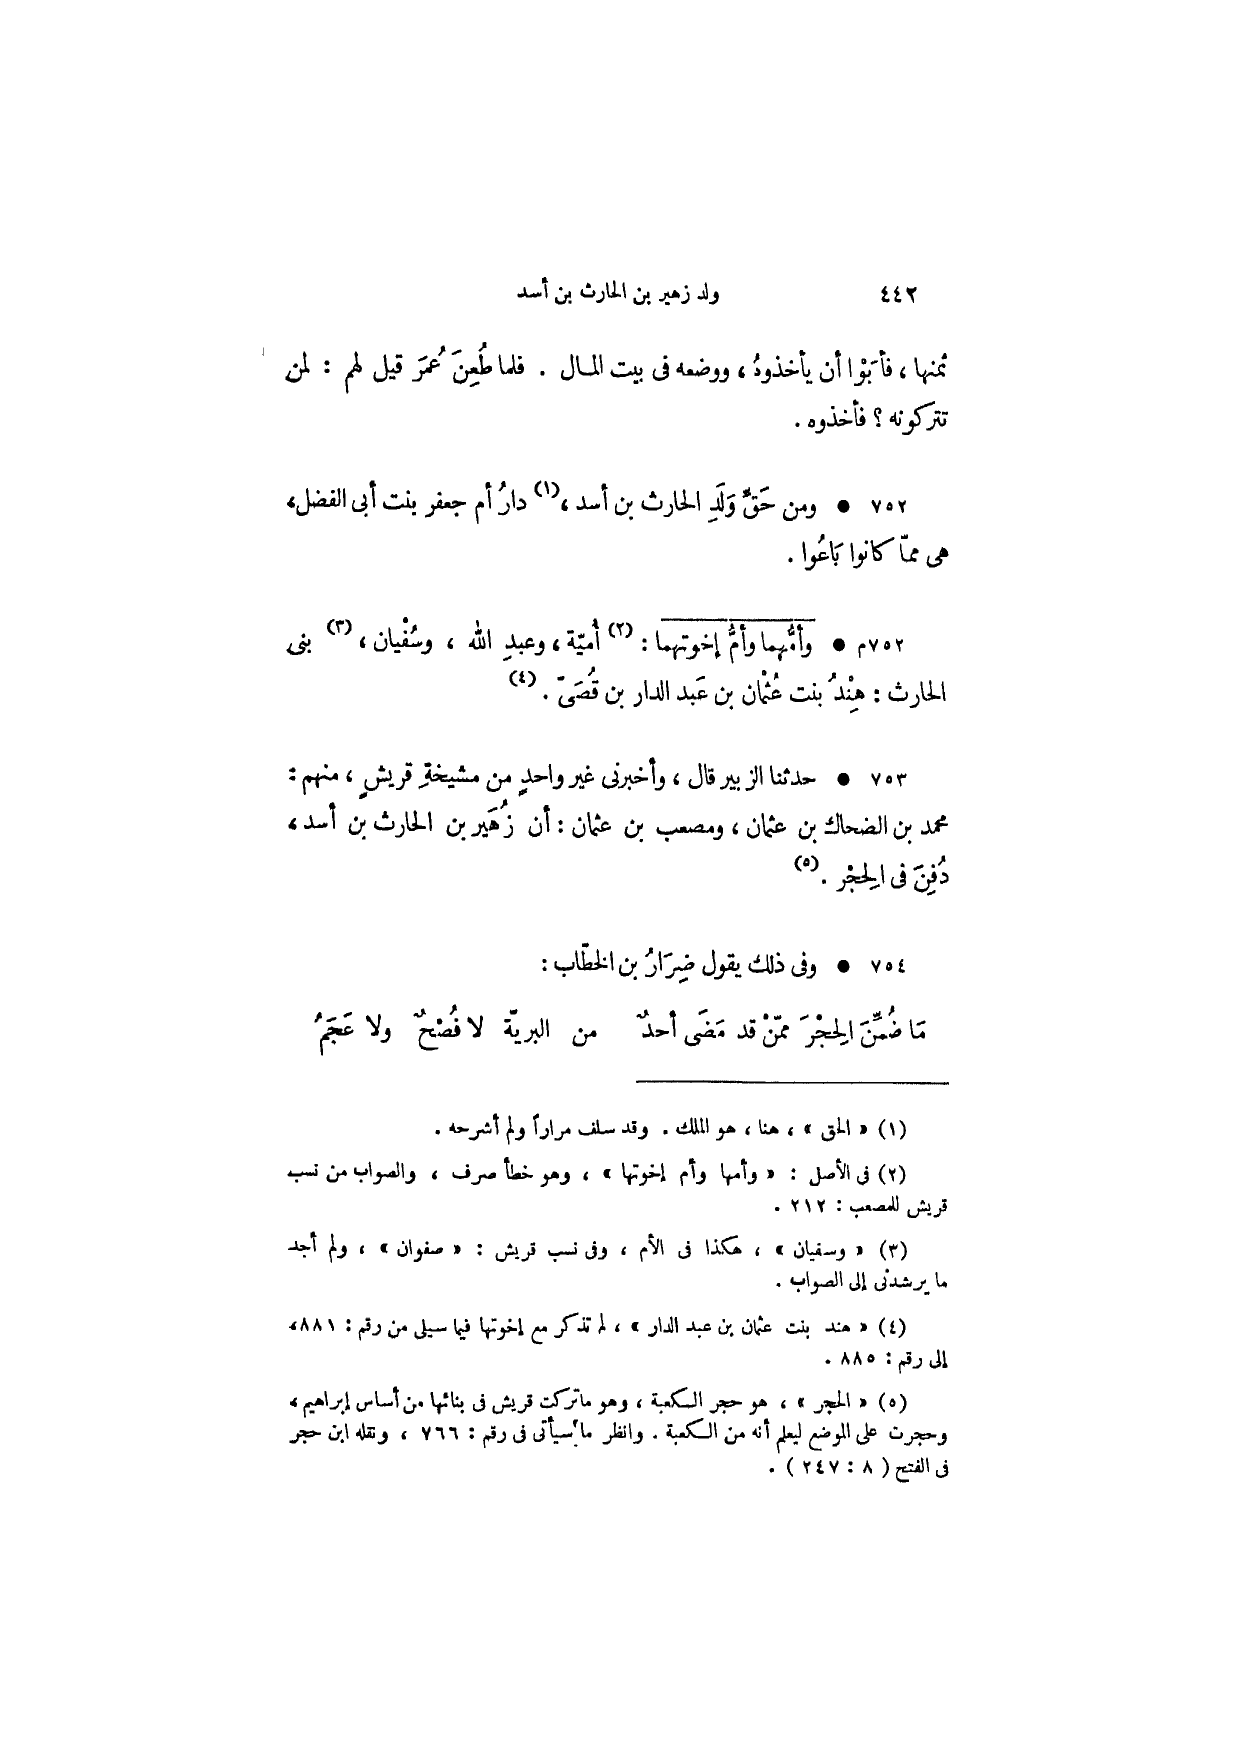 ٤٤٢ ولد زهير بن الحارث بن أسد
ثمنها ، فأبَوْا أن يأخذوهُ ، ووضعه فى بيت المـال . فلما طُعِنَ عُمَرَ قيل لهم : لمن
تتركونه ؟ فأخذوه .
٧٥٢ ● ومن حَقِّ وَلَدِ الحارث بن أسد ،(١) دارُ أم جعفر بنت أبى الفضل ،
هى ممّا كانوا بَاعُوا .
٧٥٢م ● وأمُّهما وأمُّ إخوتهما :(٢) أُميّة ، وعبدِ الله ، وسُفْيان ،(٣) بنى
الحارث : هِنْدُ بنت عُثْمان بن عَبد الدار بن قُصَىّ .(٤)
٧٥٣ ● حدثنا الزبير قال ، وأخبرنى غير واحدٍ من مشيخةِ قريشٍ ، منهم :
محمد بن الضحاك بن عثمان ، ومصعب بن عثمان : أن زُهَير بن الحارث بن أسد ،
دُفِنَ فى الحِجْر .(٥)
٧٥٤ ● وفى ذلك يقول ضِرَارُ بن الخطّاب :
مَا ضُمِّنَ الحِجْرَ ممّنْ قد مَضَى أحدٌ من البريّة لا فُصْحٌ ولا عَجَمُ
(١) « الحق » ، هنا ، هو الملك . وقد سلف مراراً ولم أشرحه .
(٢) فى الأصل : « وأمها وأم إخوتها » ، وهو خطأ صرف ، والصواب من نسب
قريش للمصعب : ٢١٢ .
(٣) « وسفيان » ، هكذا فى الأم ، وفى نسب قريش : « صفوان » ، ولم أجد
ما يرشدنى إلى الصواب .
(٤) « هند بنت عثمان بن عبد الدار » ، لم تذكر مع إخوتها فيما سيلى من رقم : ٨٨١،
إلى رقم : ٨٨٥ .
(٥) « الحجر » ، هو حجر الكعبة ، وهو ماتركت قريش فى بنائها من أساس إبراهيم ،
وحجرت على الموضع ليعلم أنه من الكعبة . وانظر ما سيأتى فى رقم : ٧٦٦ ، ونقله ابن حجر
فى الفتح ( ٨ : ٢٤٧ ) .